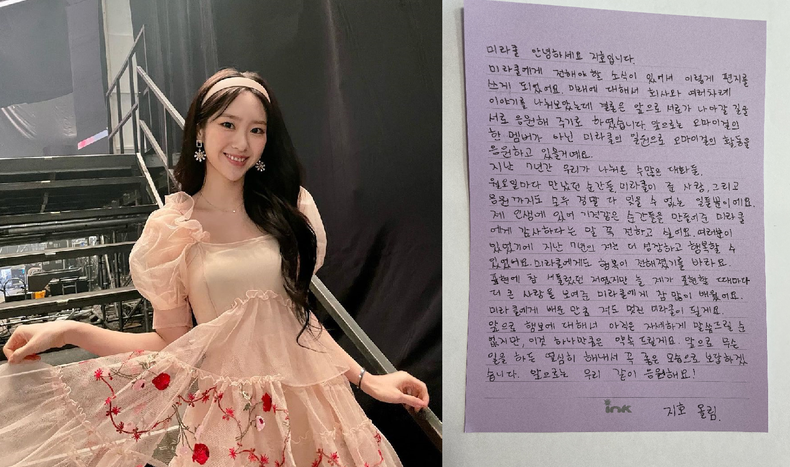 미라클 안녕하세요 지호입니다.
미라클에게 전해야 할 소식이 있어서 이렇게 편지를
쓰게 되었어요. 미래에 대해서 회사와 여러차례
이야기를 나눠보았는데 결론은 앞으로 서로가 나아갈 길을
서로 응원해 주기로 하였습니다. 앞으로는 오마이걸의
한 멤버가 아닌 미라클의 일원으로 오마이걸의 활동을
응원하고 있을게요.
지난 7년간 우리가 나눠온 수많은 대화들.
월요일마다 만났던 순간들, 미라클이 준 사랑, 그리고
응원까지도 모두 정말 다 잊을 수 없는 일들뿐이에요.
제 인생에 있어 기적같은 순간들을 만들어준 미라클
에게 감사하다는 말 꼭 전하고 싶어요. 여러분이
있었기에 지난 7년의 저는 더 성장하고 행복할 수
있었어요. 미라클에게도 행복이 전해졌기를 바라요.
표현에 참 서툴렀던 저였지만 늘 제가 표현할 때마다
더 큰 사랑을 보여준 미라클에게 참 많이 배웠어요.
미라클에게 배운 만큼 저도 멋진 미라클이 될게요.
앞으로 행보에 대해서 아직은 자세하게 말씀드릴 순
없지만, 이것 하나만큼은 약속드릴게요. 앞으로 무슨
일을 하든 열심히 해내서 꼭 좋은 모습으로 보답하겠
습니다. 앞으로는 우리 같이 응원해요!
ink
지호 올림.